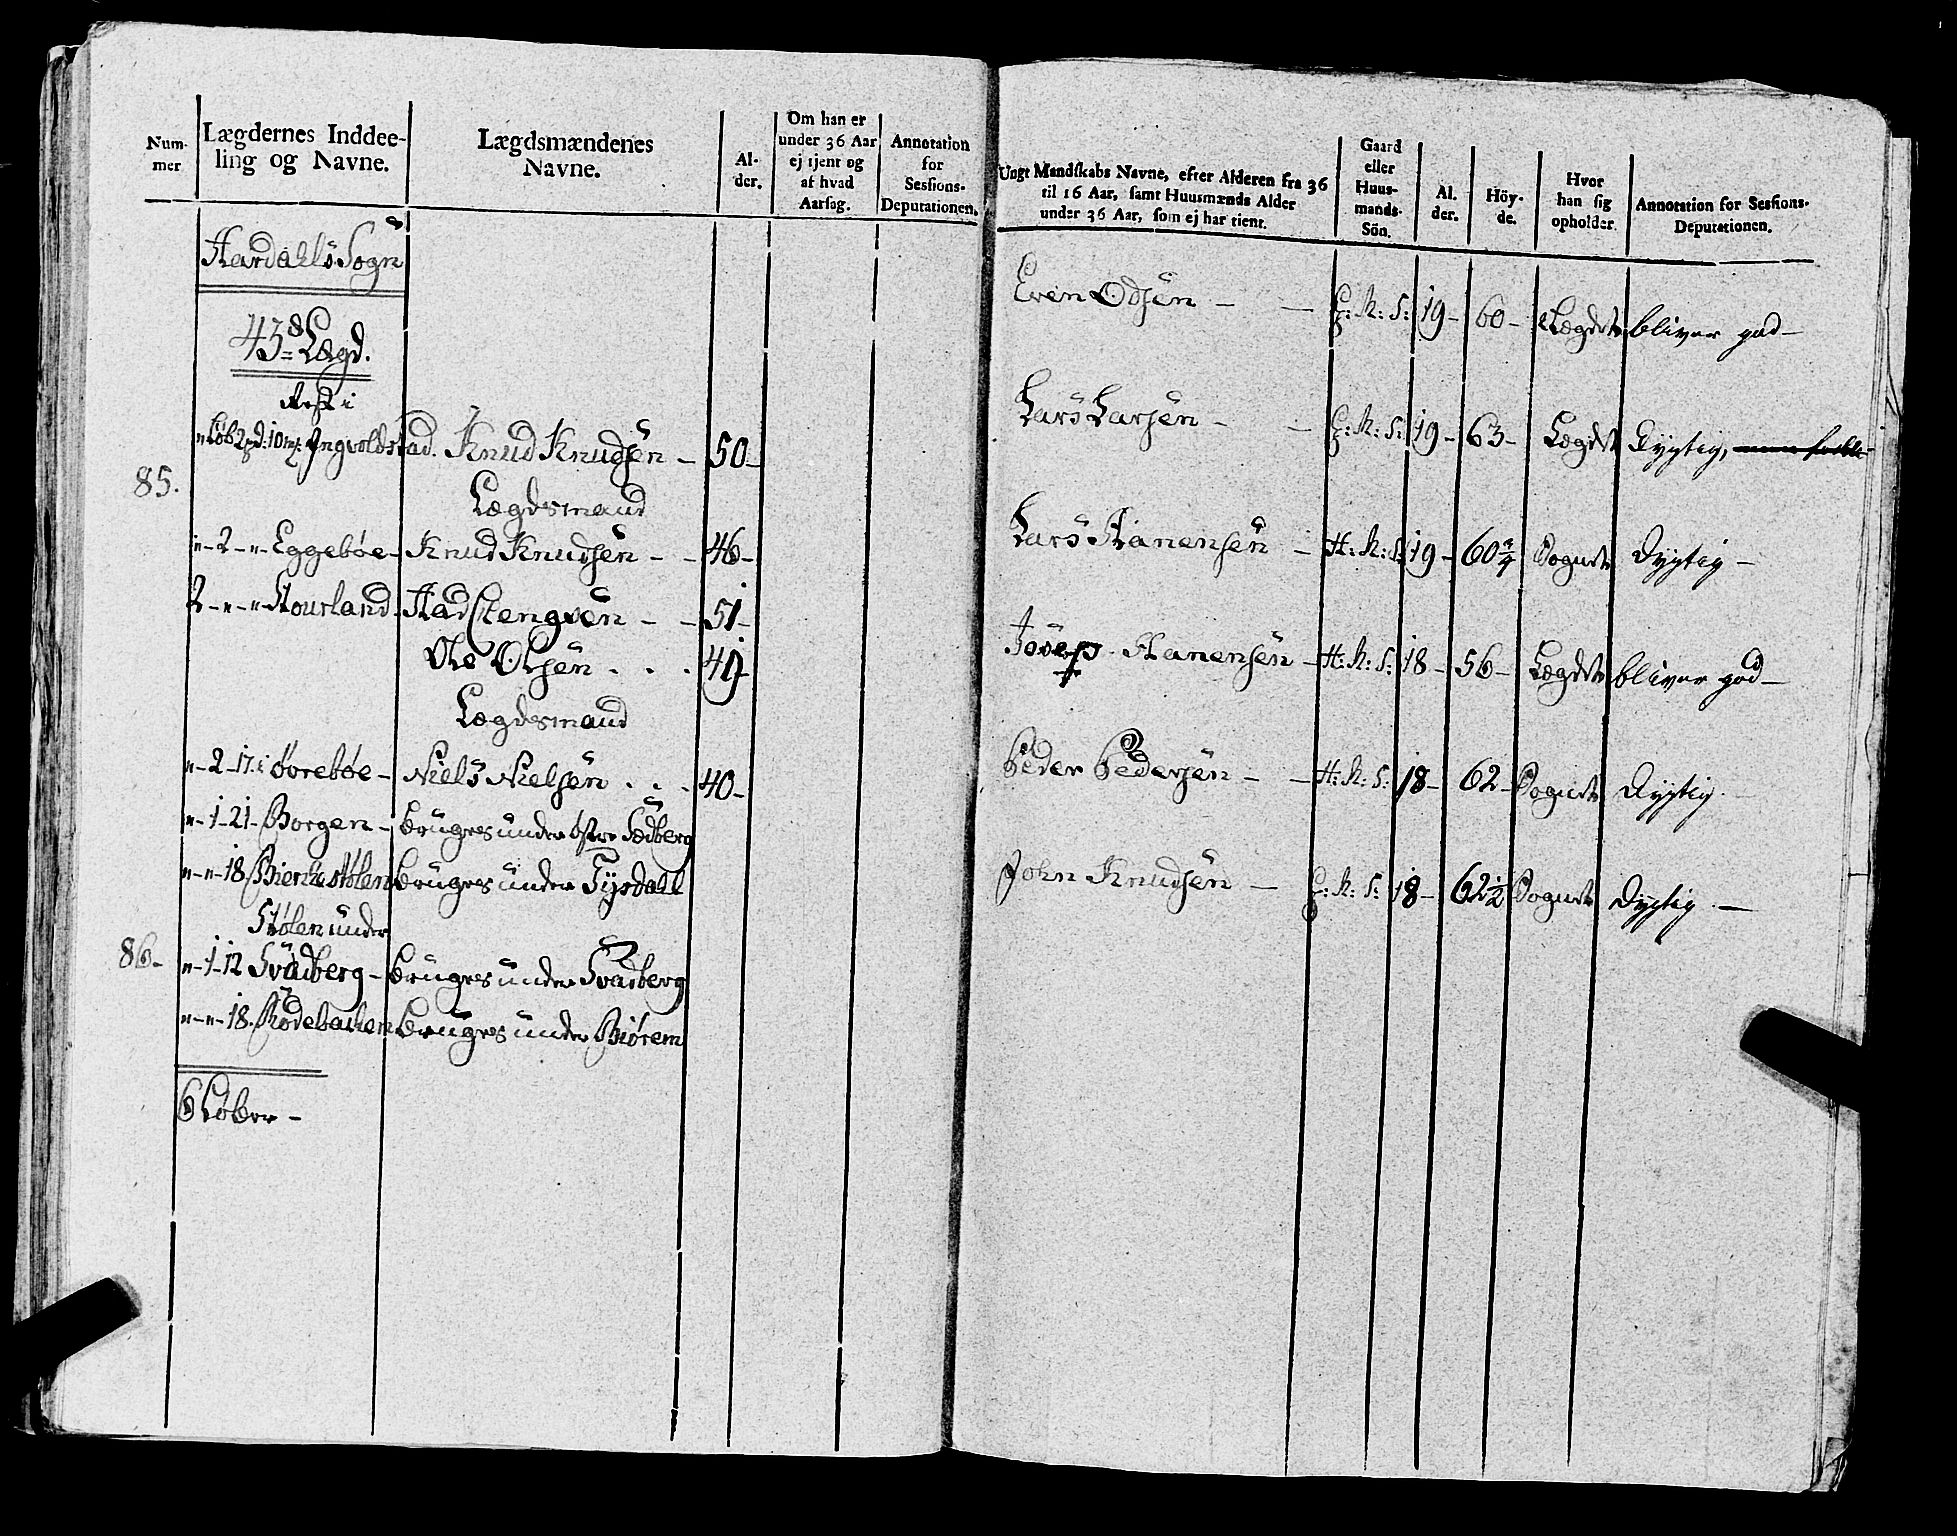 Num-
mer
Lægdernes Inddee-
ling og Navne.
Lægdsmændenes
Navne.
Al-
der.
Om han er
under 36 Aar
ej tjent og
af hvad
Aarsag.
Annotation
for
Sessions-
Deputationen.
Aardahls Sogn
43de Lægd.
Løb 2pd: 10mk: Jngvoldstad. Knud Knudsen – 50–
85.
Lægdsmand
„–2–„– Eggebøe – Knud Knudsen – – 46–
2–„–„– Hourland – Aad Stengven – – 51–
Ole Olsen . . . 49–
Lægdsmand
„–2–17: Øvrebøe – Niels Nielsen . . . 40–
„–1–21– Borgen – bruges under østre Sædberg
„–„–18. bruges under Tysdahl
Stølen under
86– „–1–12 Svadberg – bruges under Svadberg
„–„–18. Rødebakken bruges under Biørem
6 Løber –
Ungt Mandskabs Navne, efter Alderen fra 36
til 16 Aar, samt Huusmænds Alder
under 36 Aar, som ej har tient.
Gaard
eller
Huus-
mands-
Sön.
Al.
der.
Höy-
de.
Hvor
han sig
opholder.
Annotation for Sessions-
Deputationen.
Even Odsen – – G: K: S: 19– 60– Lægdet bliver god –
Lars Larsen – – G: K: S: 19– 63– Lægdet Dygtig,
Lars Hanensen – H: K: S: 19– 60¾ Sognet Dygtig –
Josep Hanensen – H: K: S: 18– 56– Lægdet bliver god –
Peder Pedersen – – H: K: S: 18– 62– Sognet Dygtig. –
John Knudsen – G: K: S: 18– 62½ Sognet Dygtig. –